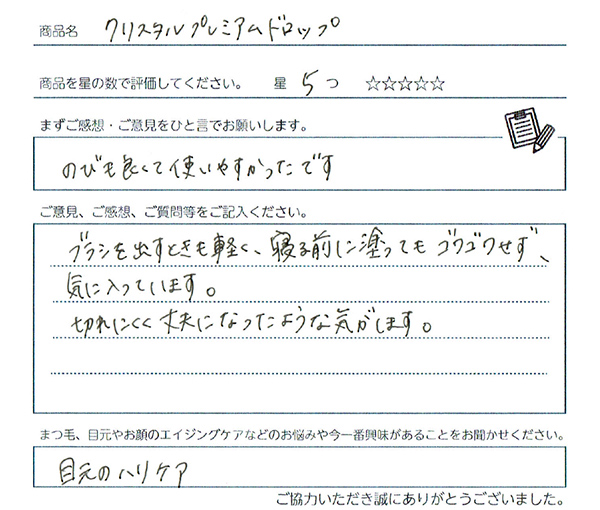 商品名 クリスタルプレミアムドロップ
商品を星の数で評価してください。 星 5 つ ☆☆☆☆☆
まずご感想・ご意見をひと言でお願いします。
のびも良くて使いやすかったです
ご意見、ご感想、ご質問等をご記入ください。
ブラシを出すときも軽く、寝る前に塗ってもゴワゴワせず、
気に入っています。
切れにくく丈夫になったような気がします。
まつ毛、目元やお顔のエイジングケアなどのお悩みや今一番興味があることをお聞かせください。
目元のハリケア
ご協力いただき誠にありがとうございました。